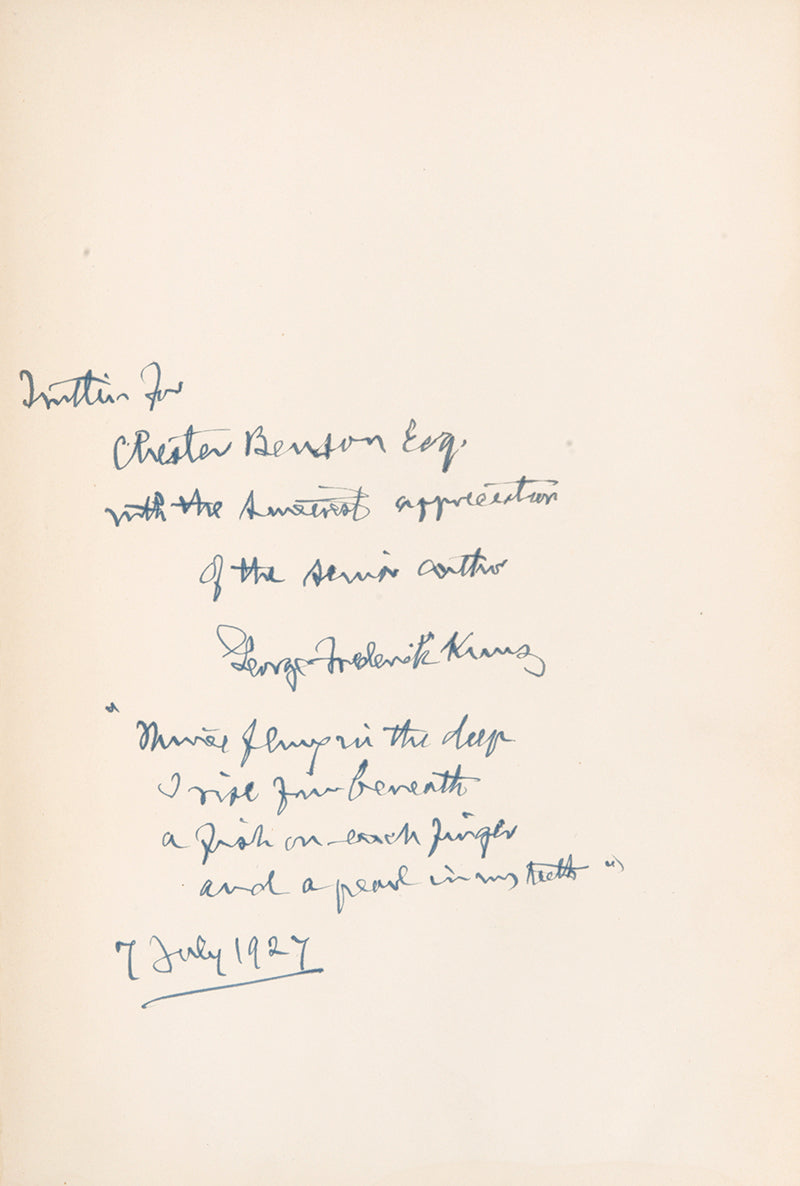 Written for
Chester Benson Esq.
with the sincerest appreciation
of the senior author
George Frederick Kunz
"
flung in the deep
I rise from beneath
a fish on each finger
and a pearl in my teeth "
7 July 1927